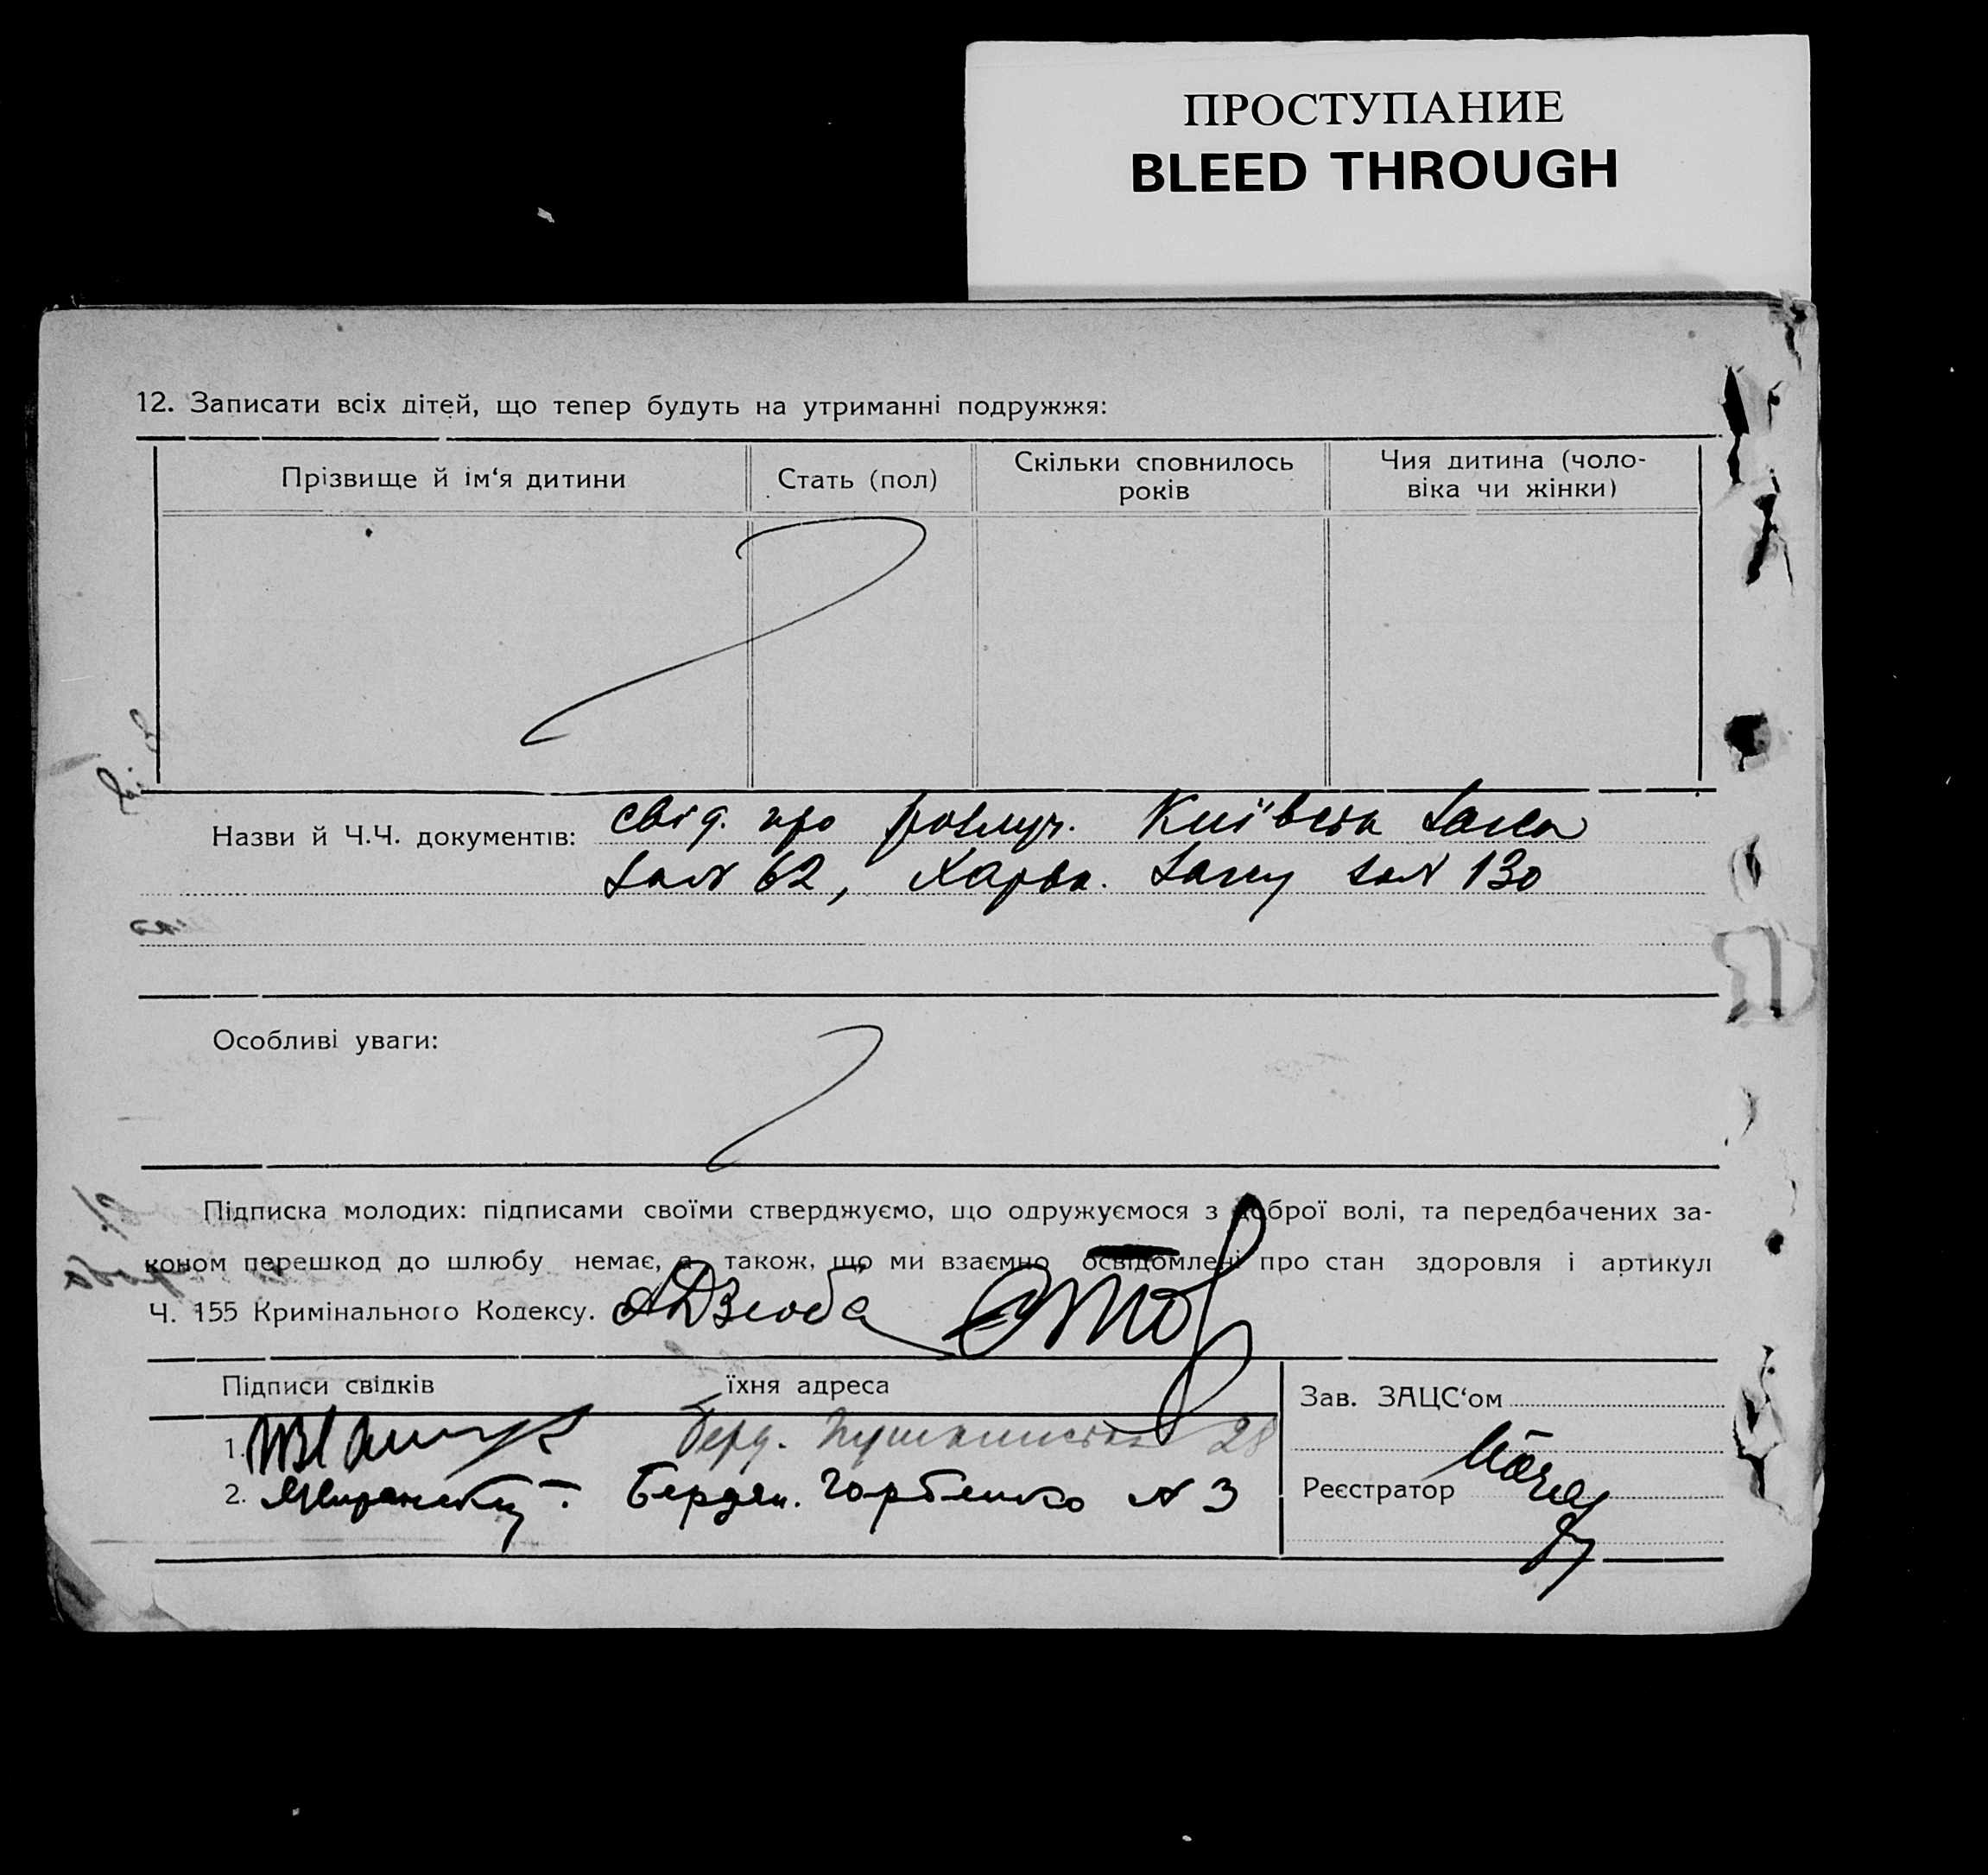 ПРОСТУПАНИЕ
BLEED THROUGH
12. Записати всіх дітей, що тепер будуть на утриманні подружжя:
Прізвище й ім‘я дитини
Стать (пол)
Скільки сповнилось
років
Чия дитина (чоло-
віка чи жінки)
Назви й Ч.Ч. документів: свід. про розлуч. Київська
за № 62, Харьк. за № 130
Особливі уваги:
Підписка молодих: підписами своїми стверджуємо, що одружуємося з доброї волі, та передбачених за-
коном перешкод до шлюбу немає, а також, що ми взаємно освідомлені про стан здоровля і артикул
Ч. 155 Кримінального Кодексу. АДзюба
Підписи свідків
їхня адреса
1. Берд. Пушкинська 28
2. Бердян. Горбенко № 3
Зав. ЗАЦС‘ом
Реєстратор